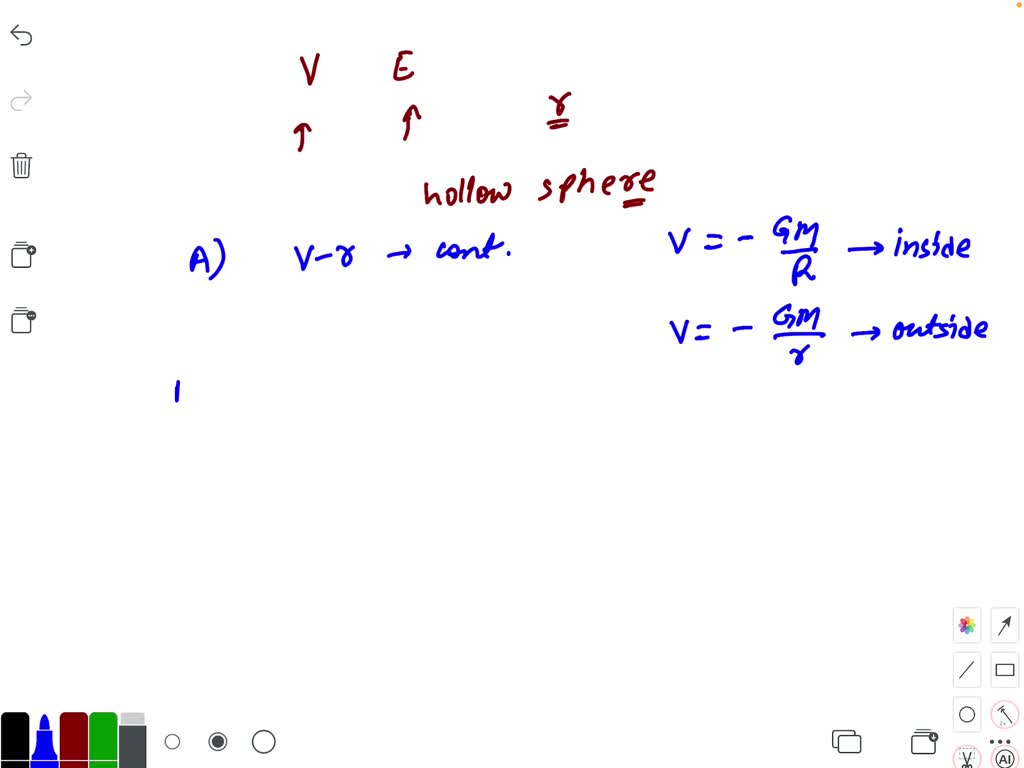 V E
r
hollow sphere
A) V-r → cont.
V = - GM/R → inside
V = - GM/r → outside
AI